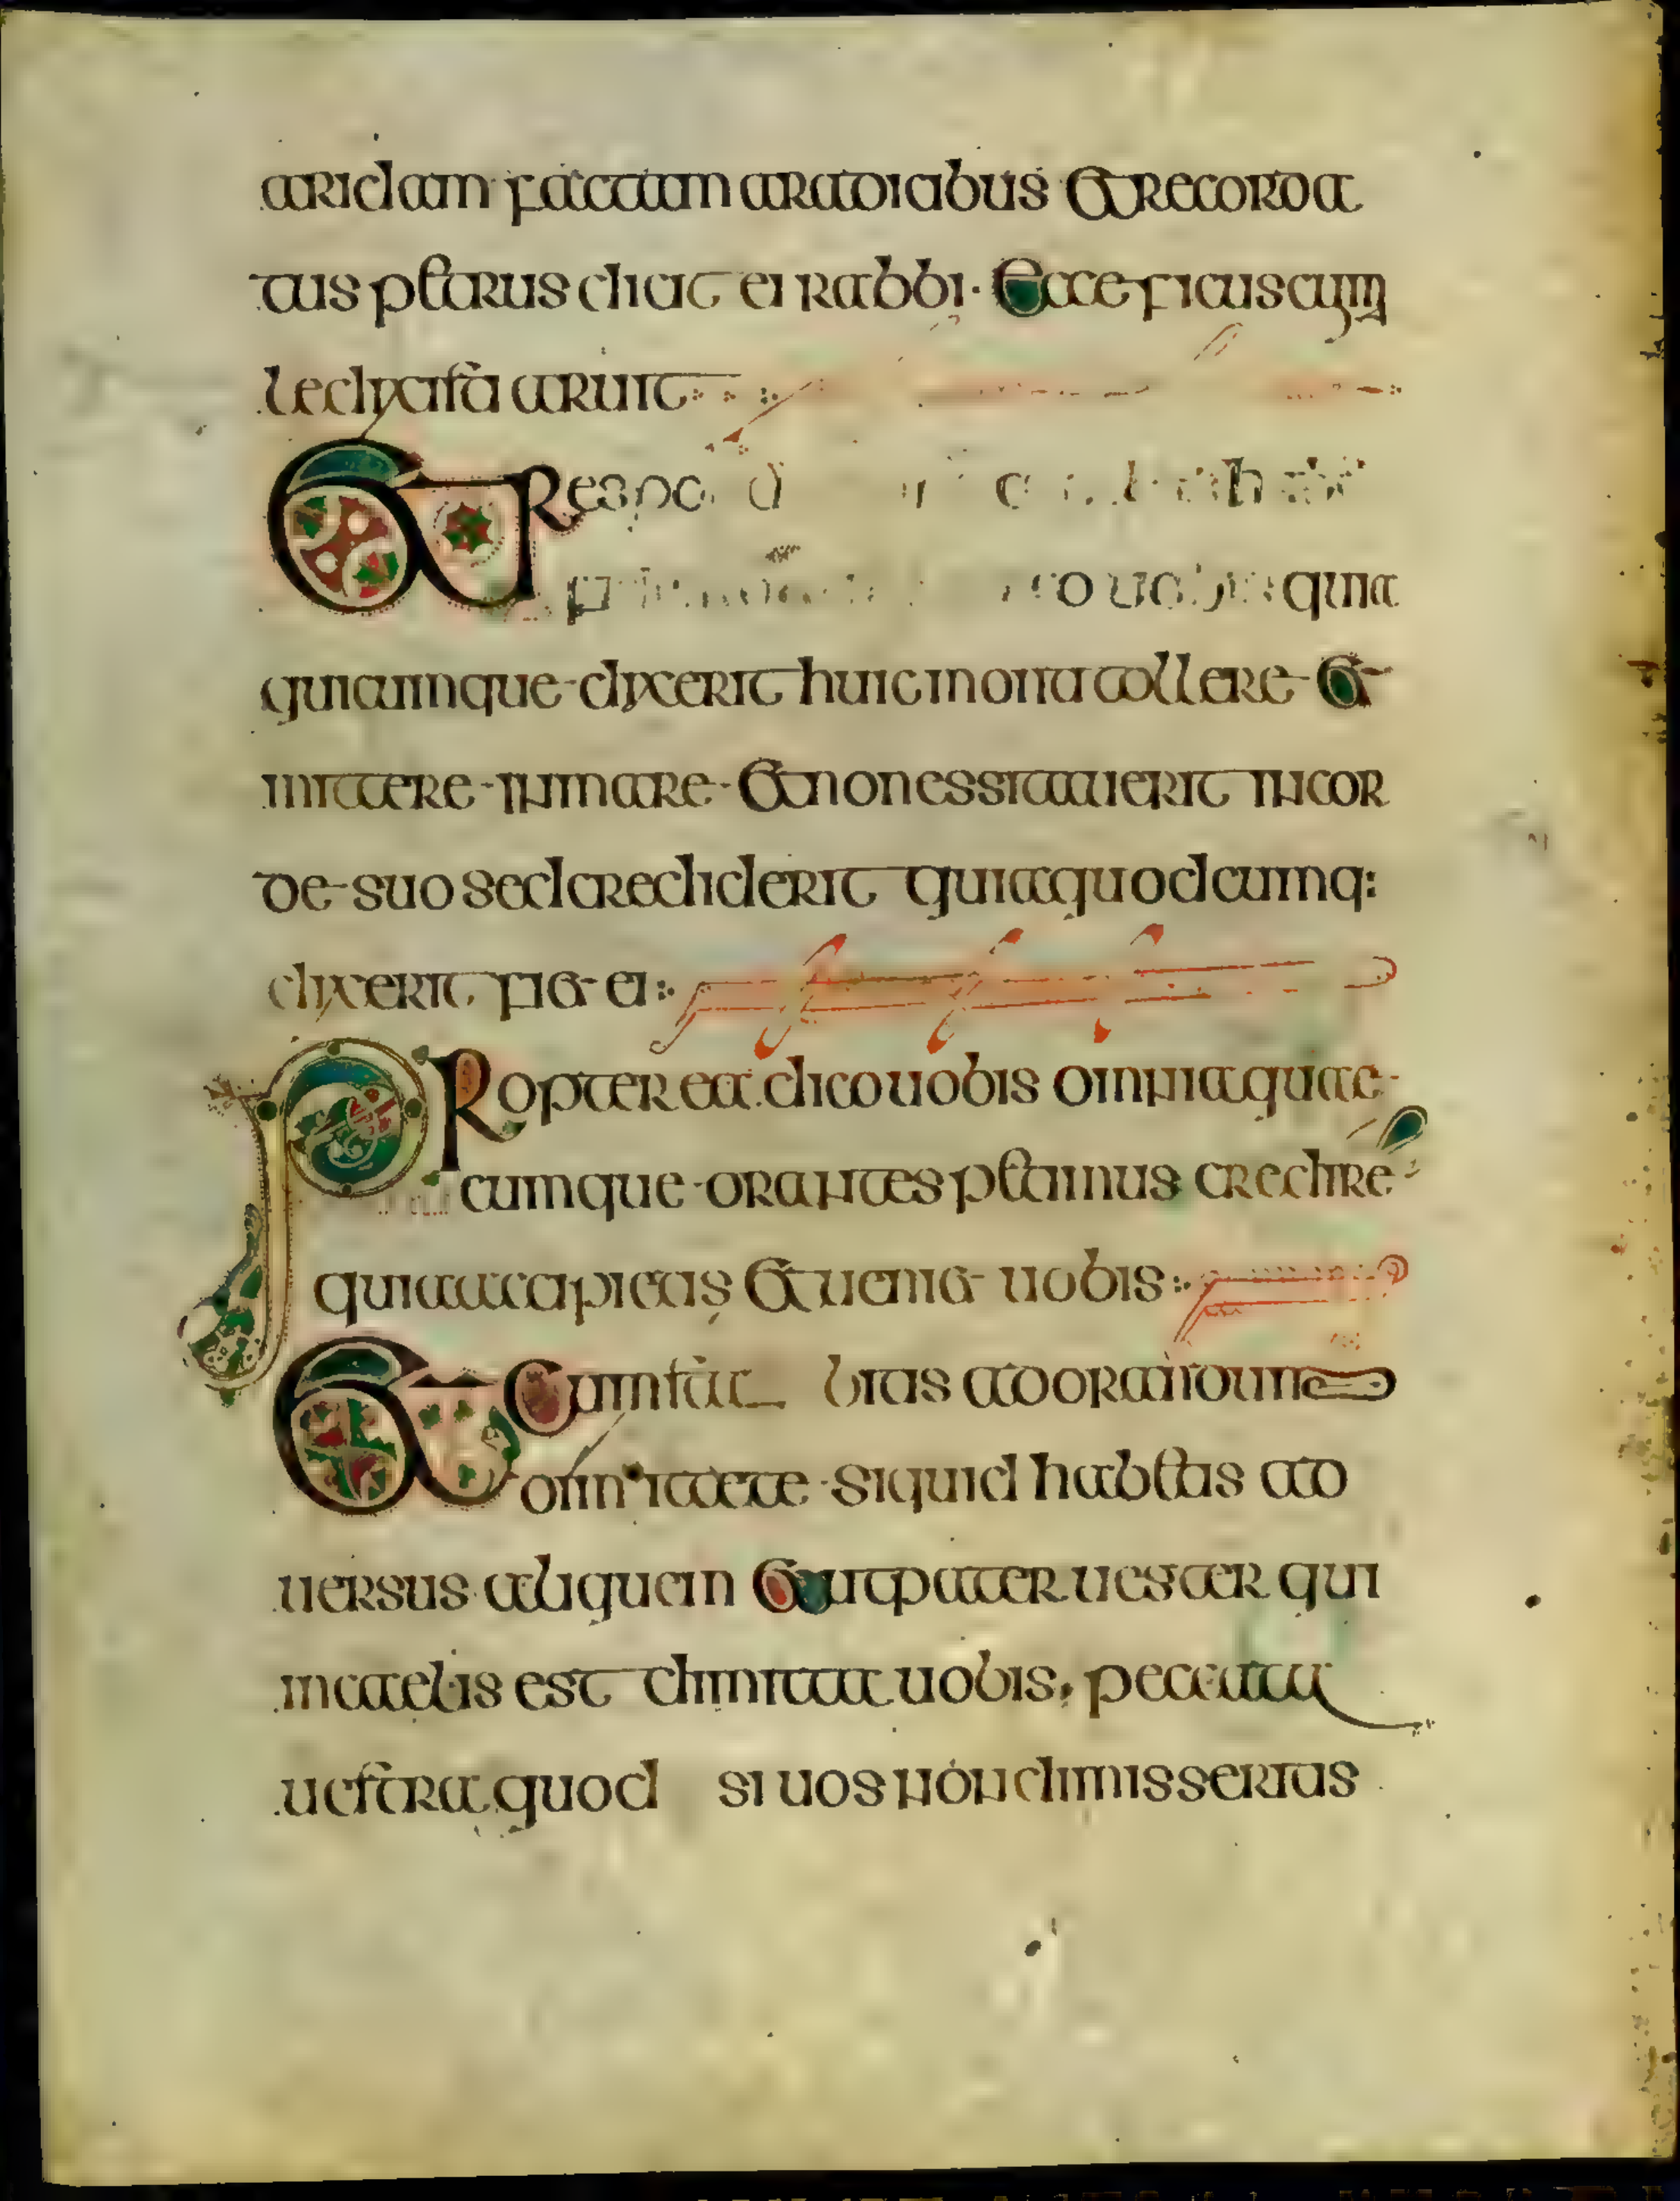 aridam factam aradicibus et recorda
tus petrus dicit ei rabbi · Ecce ficus cum
ledixisti aruit
Et Respo
uobis quia
quicumque dixerit huic monti tollere et
mittere in mare et non essitauerit in cor
de suo sed crediderit quia quodcumq:
dixerit fiet ei
Propterea dico uobis omnia quae
cumque orantes petimus credire
quia accipietis et ueniet uobis
Et Cum sta bitis ad orandum
omittere siquid habetis ad
uersus aliquem et ut pater uester qui
in caelis est dimittat uobis, peccata
uestra quod si uos non dimisseritis